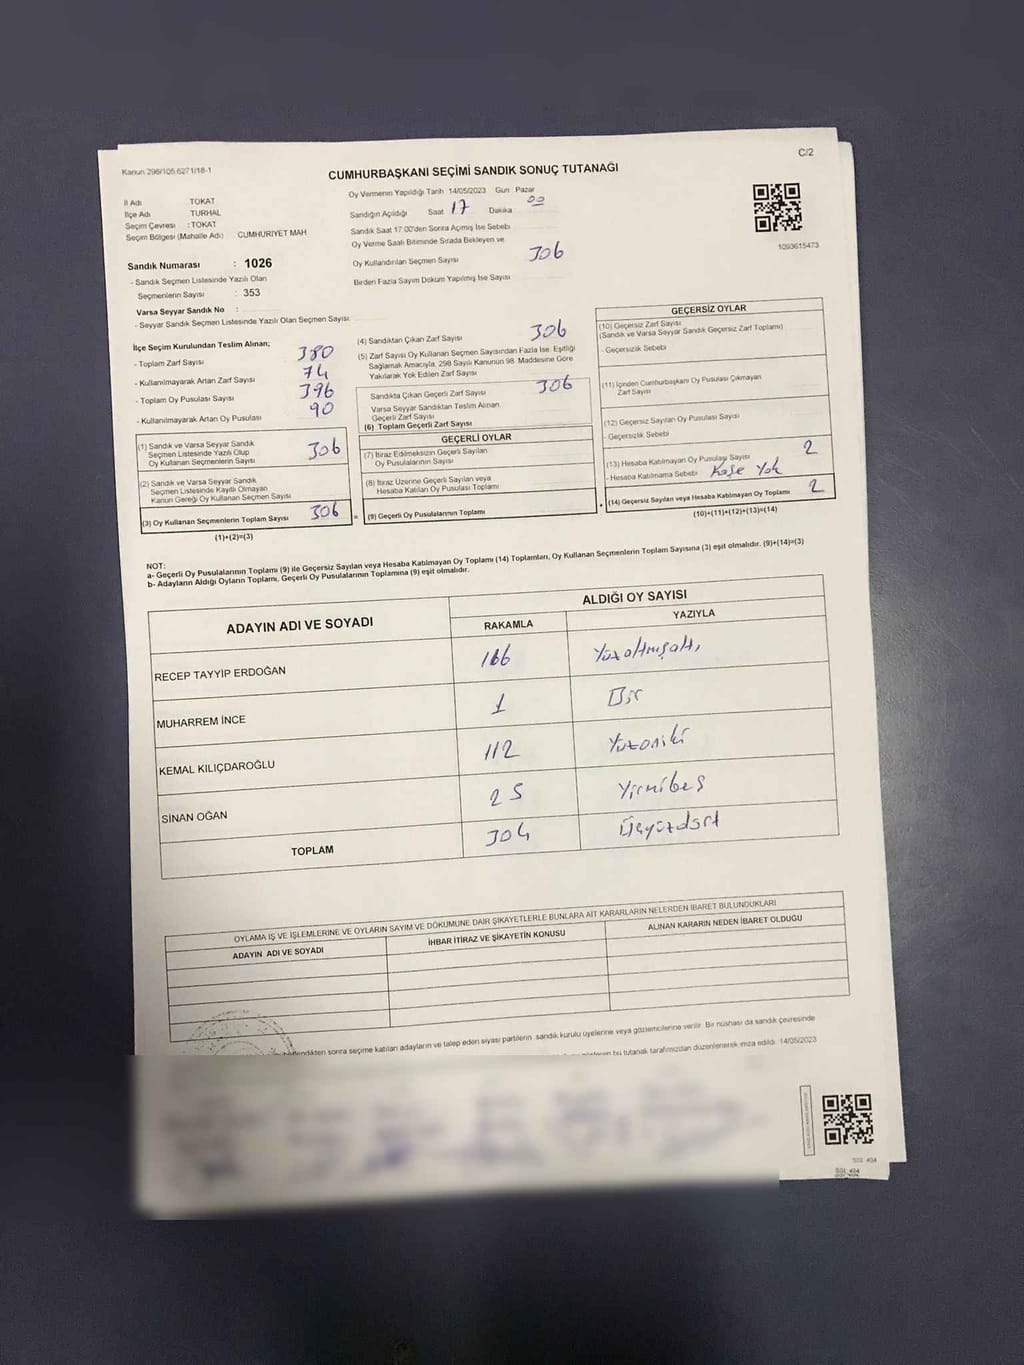 C/2
Kanun 298/105.6271/18-1
CUMHURBAŞKANI SEÇİMİ SANDIK SONUÇ TUTANAĞI
İl Adı TOKAT
İlçe Adı TURHAL
Seçim Çevresi : TOKAT
Seçim Bölgesi (Mahalle Adı) CUMHURİYET MAH
Sandık Numarası : 1026
- Sandık Seçmen Listesinde Yazılı Olan
Seçmenlerin Sayısı : 353
Varsa Seyyar Sandık No :
- Seyyar Sandık Seçmen Listesinde Yazılı Olan Seçmen Sayısı
Oy Vermenin Yapıldığı Tarih 14/05/2023 Gün : Pazar
Sandığın Açıldığı Saat 17 Dakika 00
Sandık Saat 17.00'den Sonra Açımış İse Sebebi
Oy Verme Saati Bitiminde Sırada Bekleyen ve
Oy Kullandırılan Seçmen Sayısı 306
Birden Fazla Sayım Döküm Yapılmış İse Sayısı
1093615473
İlçe Seçim Kurulundan Teslim Alınan;
- Toplam Zarf Sayısı 380
- Kullanılmayarak Artan Zarf Sayısı 74
- Toplam Oy Pusulası Sayısı 396
- Kullanılmayarak Artan Oy Pusulası 90
(1) Sandık ve Varsa Seyyar Sandık
Seçmen Listesinde Yazılı Olup
Oy Kullanan Seçmenlerin Sayısı 306
(2) Sandık ve Varsa Seyyar Sandık
Seçmen Listesinde Kayıtlı Olmayan
Kanun Gereği Oy Kullanan Seçmen Sayısı
(3) Oy Kullanan Seçmenlerin Toplam Sayısı 306
(1)+(2)=(3)
(4) Sandıktan Çıkan Zarf Sayısı 306
(5) Zarf Sayısı Oy Kullanan Seçmen Sayısından Fazla İse, Eşitliği
Sağlamak Amacıyla, 298 Sayılı Kanunun 98. Maddesine Göre
Yakılarak Yok Edilen Zarf Sayısı
Sandıkta Çıkan Geçerli Zarf Sayısı 306
Varsa Seyyar Sandıktan Teslim Alınan
Geçerli Zarf Sayısı
(6) Toplam Geçerli Zarf Sayısı
GEÇERLİ OYLAR
(7) İtiraz Edilmeksizin Geçerli Sayılan
Oy Pusulalarının Sayısı
(8) İtiraz Üzerine Geçerli Sayılan veya
Hesaba Katılan Oy Pusulası Toplamı
= (9) Geçerli Oy Pusulalarının Toplamı
GEÇERSİZ OYLAR
(10) Geçersiz Zarf Sayısı
(Sandık ve Varsa Seyyar Sandık Geçersiz Zarf Toplamı)
- Geçersizlik Sebebi
(11) İçinden Cumhurbaşkanı Oy Pusulası Çıkmayan
Zarf Sayısı
(12) Geçersiz Sayılan Oy Pusulası Sayısı
- Geçersizlik Sebebi
(13) Hesaba Katılmayan Oy Pusulası Sayısı 2
- Hesaba Katılmama Sebebi Kaşe Yok
+ (14) Geçersiz Sayılan veya Hesaba Katılmayan Oy Toplamı 2
(10)+(11)+(12)+(13)=(14)
NOT:
a- Geçerli Oy Pusulalarının Toplamı (9) ile Geçersiz Sayılan veya Hesaba Katılmayan Oy Toplamı (14) Toplamları, Oy Kullanan Seçmenlerin Toplam Sayısına (3) eşit olmalıdır. (9)+(14)=(3)
b- Adayların Aldığı Oyların Toplamı, Geçerli Oy Pusulalarının Toplamına (9) eşit olmalıdır.
ADAYIN ADI VE SOYADI ALDIĞI OY SAYISI
RAKAMLA YAZIYLA
RECEP TAYYİP ERDOĞAN 166 Yüzaltmışaltı
MUHARREM İNCE 1 Bir
KEMAL KILIÇDAROĞLU 112 Yüzoniki
SİNAN OĞAN 25 Yirmibeş
TOPLAM 304 Üçyüzdört
OYLAMA İŞ VE İŞLEMLERİNE VE OYLARIN SAYIM VE DÖKÜMÜNE DAİR ŞİKAYETLERLE BUNLARA AİT KARARLARIN NELERDEN İBARET BULUNDUKLARI
ADAYIN ADI VE SOYADI İHBAR İTİRAZ VE ŞİKAYETİN KONUSU ALINAN KARARIN NEDEN İBARET OLDUĞU
sonra seçime katılan adayların ve talep eden siyasi partilerin sandık kurulu üyelerine veya gözlemcilerine verilir. Bir nüshası da sandık çevresinde
bu tutanak tarafımızdan düzenlenerek imza edildi. 14/05/2023
SGİ: 404
SGİ: 404